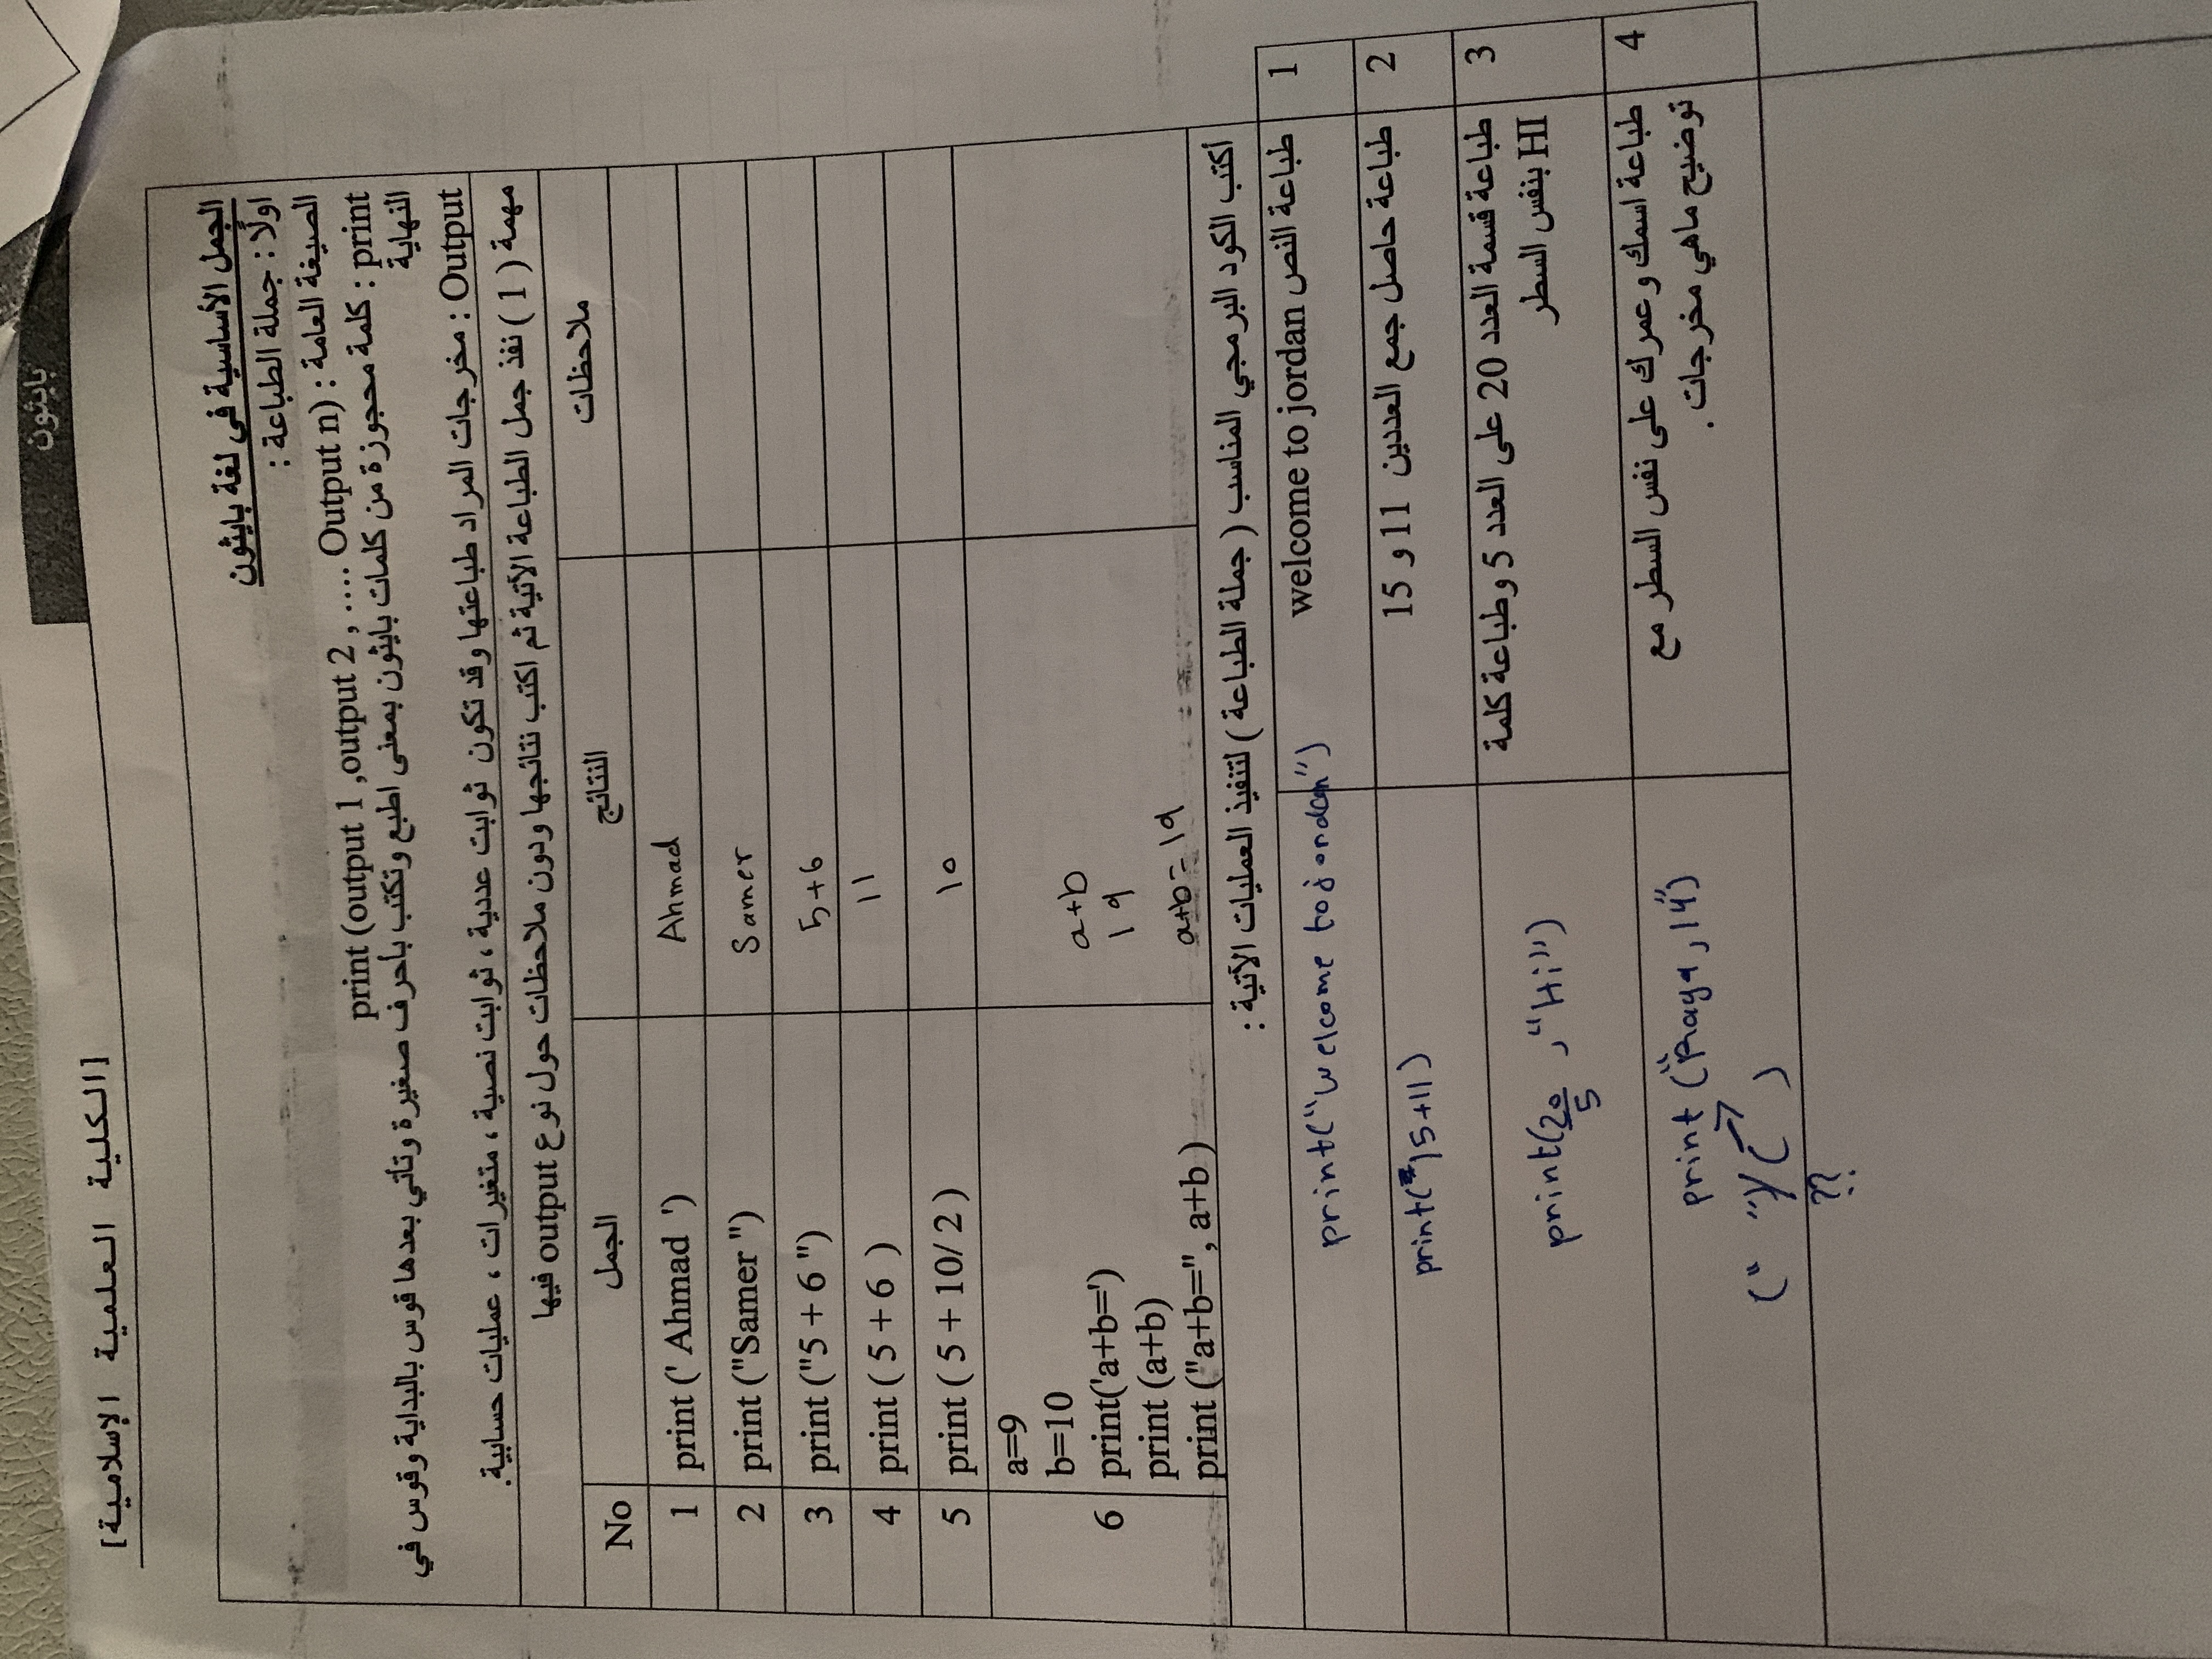 بايثون
[الكلية العلمية الإسلامية]
الجمل الأساسية في لغة بايثون
اولًا : جملة الطباعة :
الصيغة العامة : print (output 1 ,output 2 , …. Output n)
print : كلمة محجوزة من كلمات بايثون بمعنى اطبع وتكتب بأحرف صغيرة وتأتي بعدها قوس بالبداية وقوس في
النهاية
Output : مخرجات المراد طباعتها وقد تكون ثوابت عددية ، ثوابت نصية ، متغيرات ، عمليات حسابية.
مهمة ( 1 ) نفذ جمل الطباعة الآتية ثم اكتب نتائجها ودون ملاحظات حول نوع output فيها
No الجمل النتائج ملاحظات
1 print (' Ahmad ') Ahmad
2 print ("Samer ") Samer
3 print ("5 + 6 ") 5+6
4 print ( 5 + 6 ) 11
5 print ( 5 + 10/ 2 ) 10
6
a=9
b=10
print('a+b=') a+b
print (a+b) 19
print ("a+b=", a+b ) a+b=19
اكتب الكود البرمجي المناسب ( جملة الطباعة ) لتنفيذ العمليات الآتية :
1 طباعة النص welcome to jordan
print("welcome to jordan")
2 طباعة حاصل جمع العددين 11 و 15
print(15+11)
3 طباعة قسمة العدد 20 على العدد 5 وطباعة كلمة
HI بنفس السطر
print(20/5 ,"Hi")
4 طباعة اسمك و عمرك على نفس السطر مع
توضيح ماهي مخرجات .
print ("Raya, 14")
(" ")/( )
??